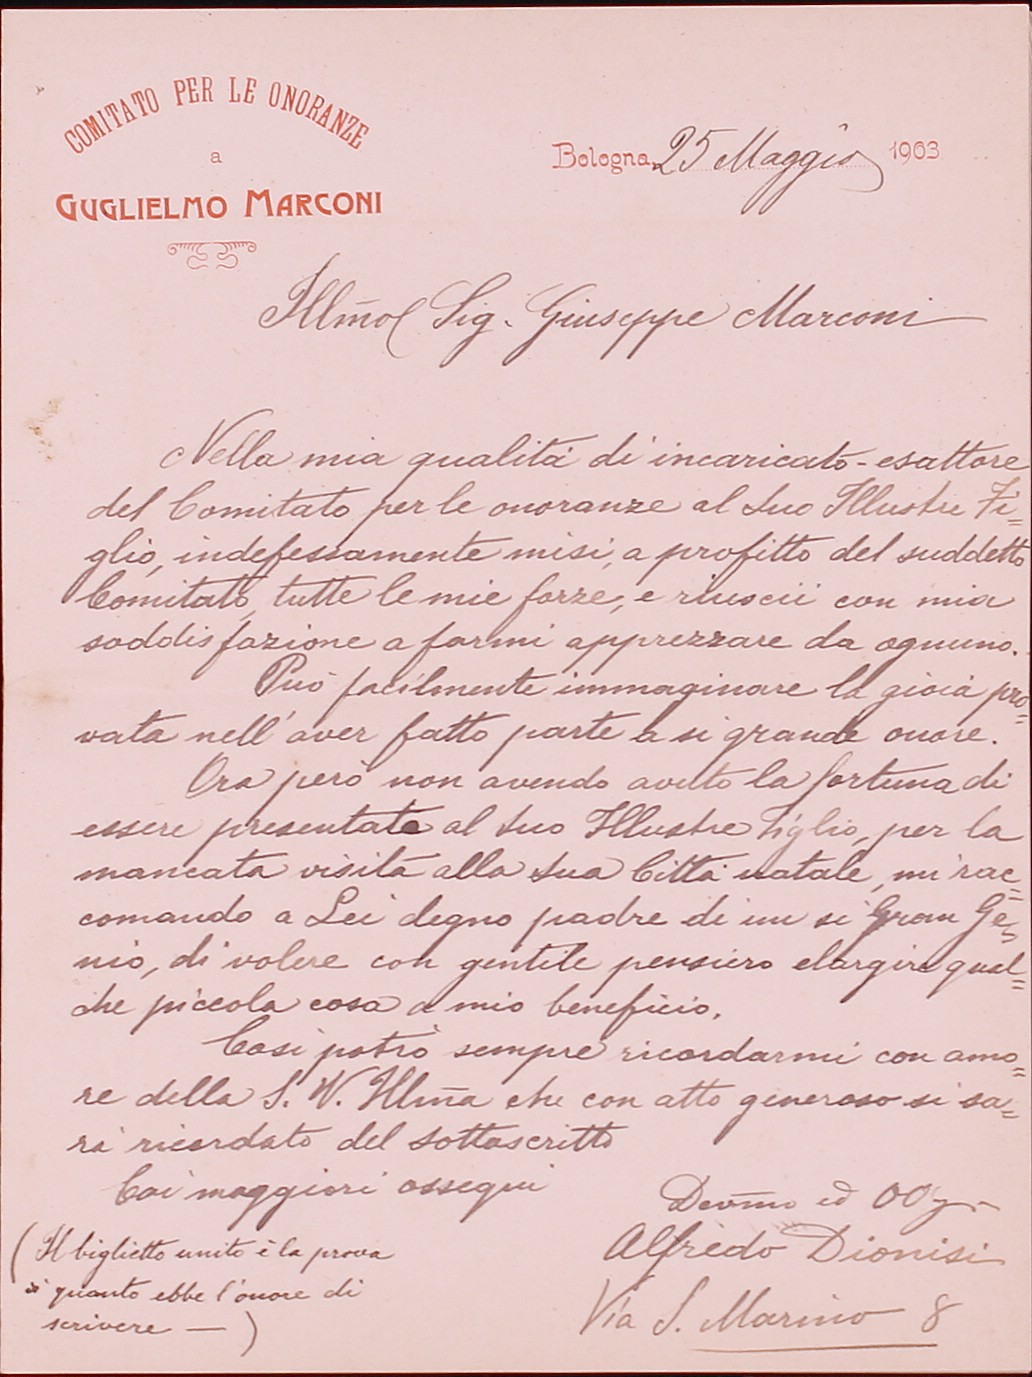 COMITATO PER LE ONORANZE
a
GUGLIELMO MARCONI
Bologna, 25 Maggio 1903
Illm̃o Sig. Giuseppe Marconi
Nella mia qualità di incaricato-esattore
del Comitato per le onoranze al Suo Illustre Fi=
glio, indefessamente misi, a profitto del suddetto
Comitato, tutte le mie forze, e riuscii con mia
soddisfazione a farmi apprezzare da ognuno.
Può facilmente immaginare la gioia pro=
vata nell'aver fatto parte a si grande onore.
Ora però non avendo avuto la fortuna di
essere presentato al Suo Illustre Figlio, per la
mancata visita alla Sua Città natale, mi rac=
comando a Lei degno padre di un si Gran Ge=
nio, di volere con gentile pensiero elargire qual=
che piccola cosa a mio beneficio.
Così potrò sempre ricordarmi con amo=
re della S. V. Illm̃a che con atto generoso si sa=
rà ricordato del sottoscritto
Coi maggiori ossequi
Devm̃o ed OOg
Alfredo Dionisi
Via S. Marino 8
(Il biglietto unito è la prova
di quanto ebbe l'onore di
scrivere — )